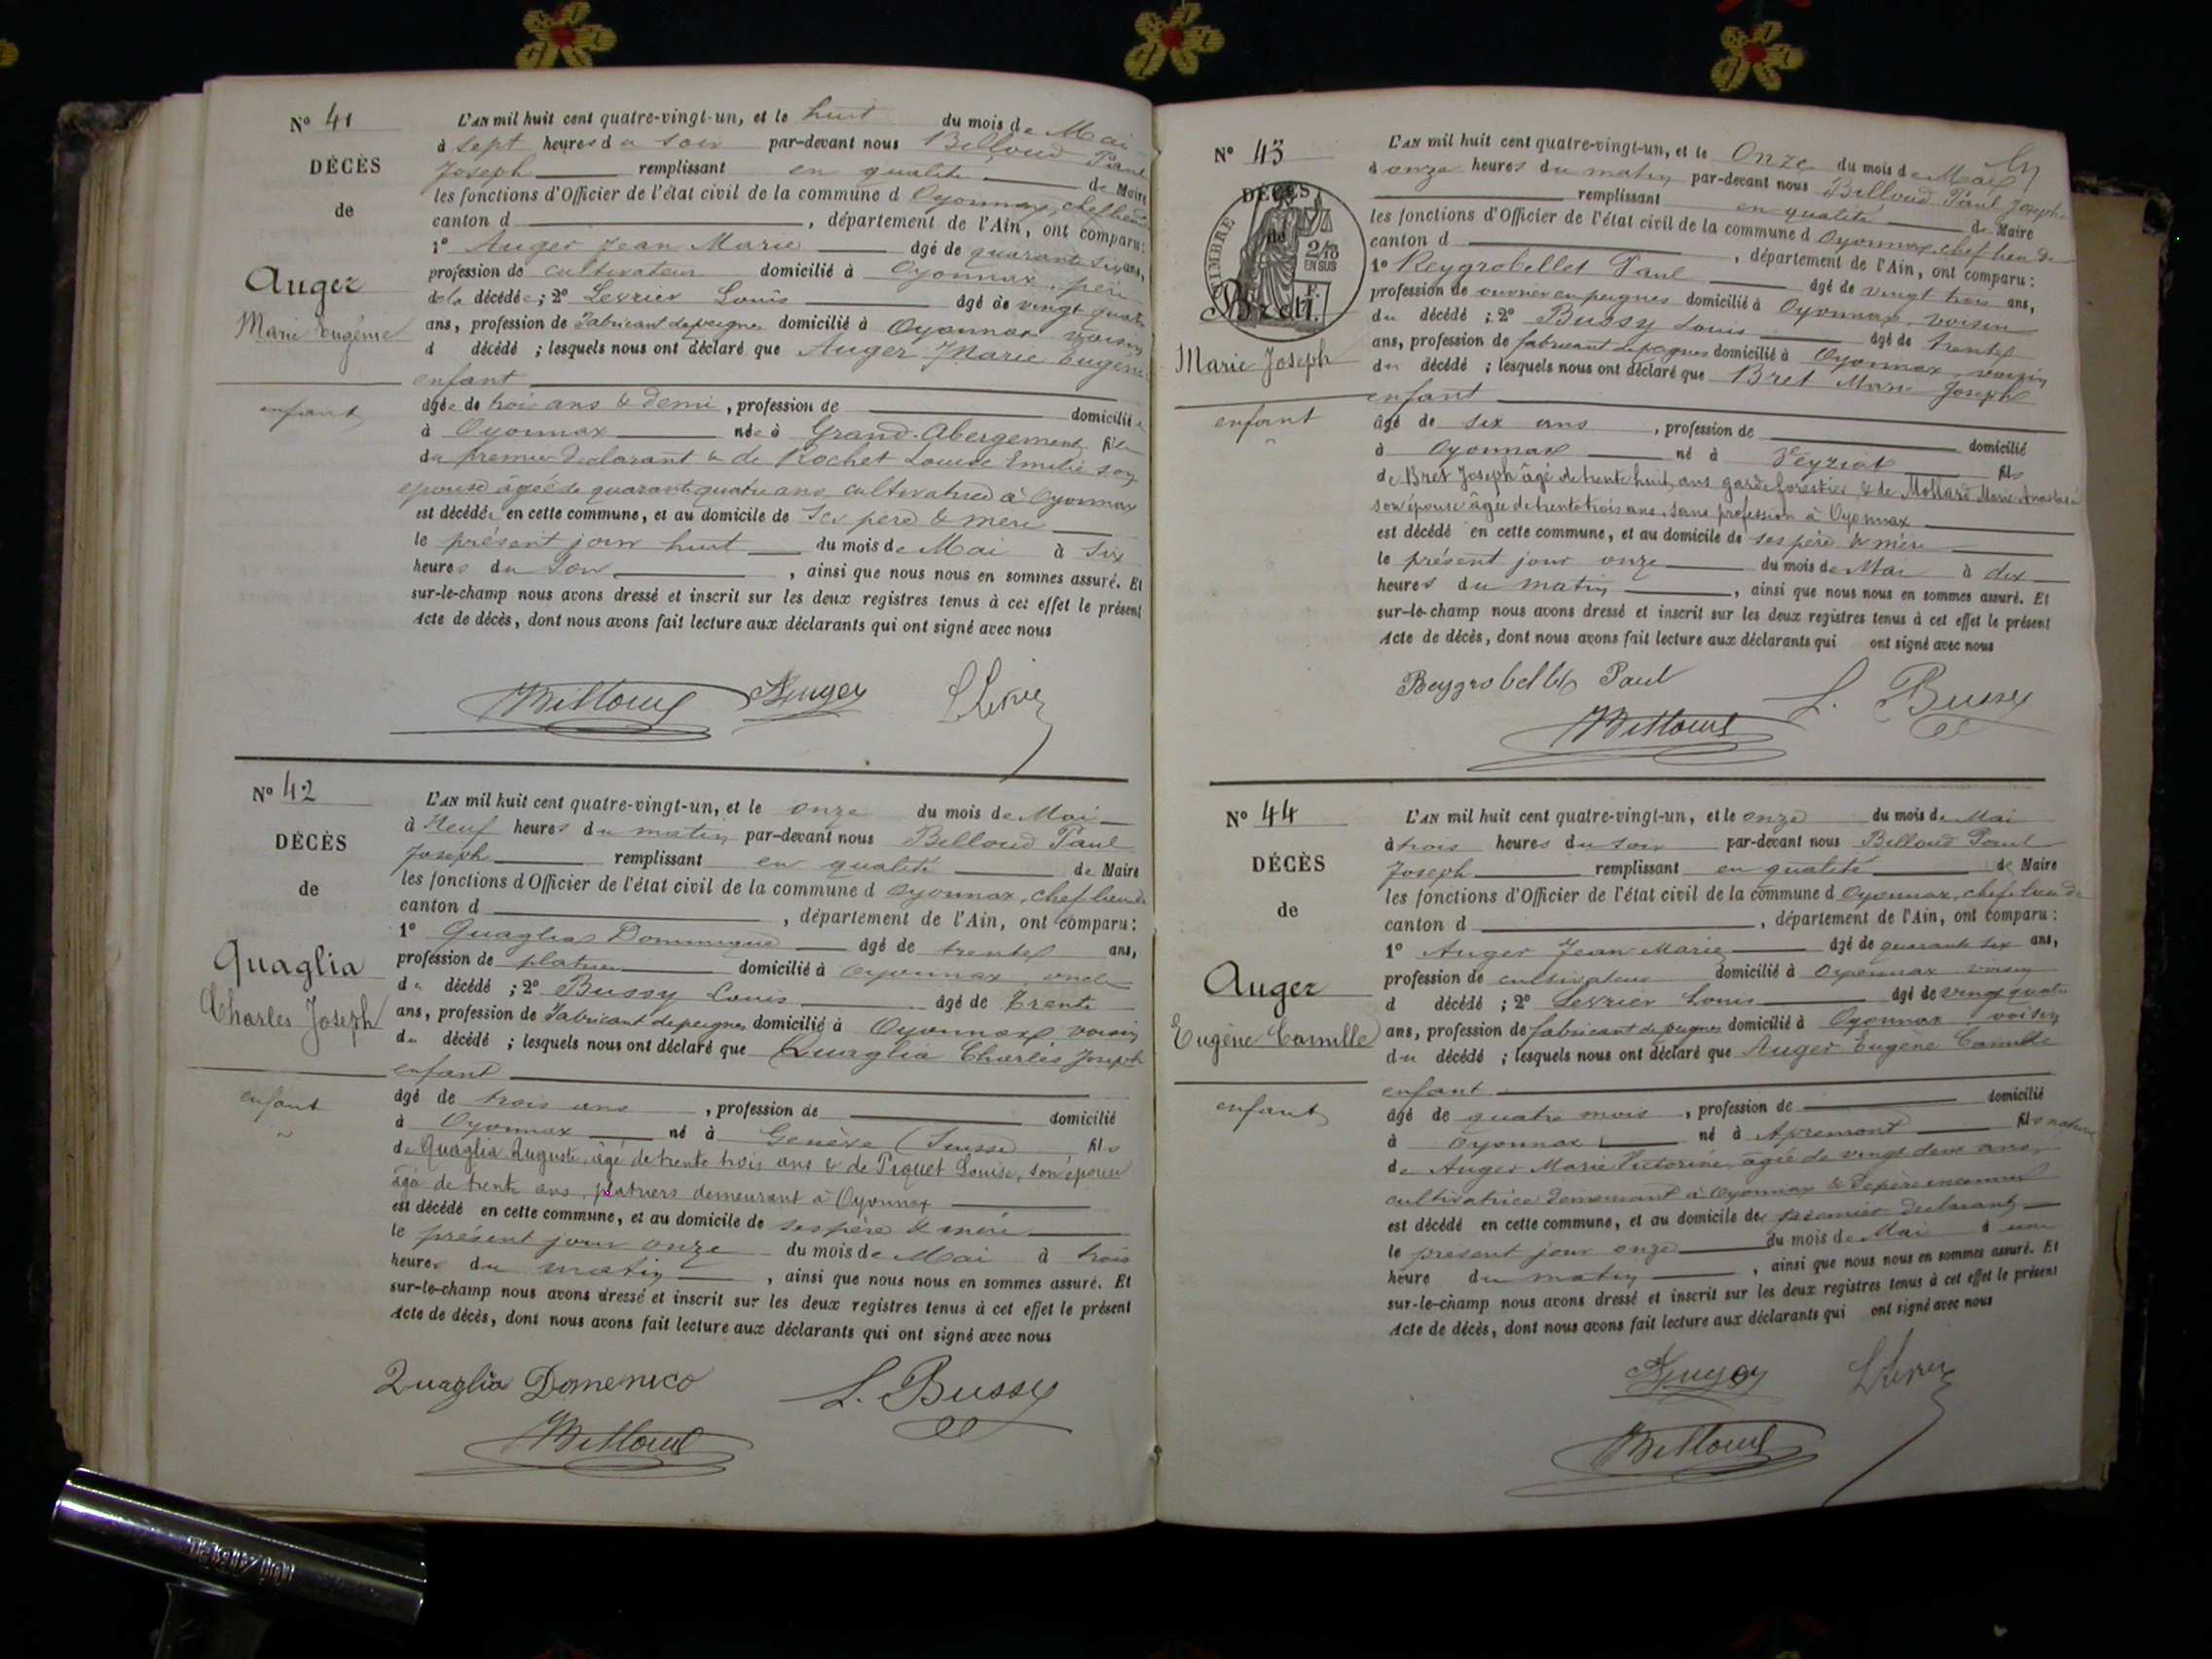 N° 41
DÉCÈS
de
Auger
Marie Eugénie
enfant
L'AN mil huit cent quatre-vingt-un, et le huit du mois de Mai
à sept heures du soir par-devant nous Belloud Paul
Joseph remplissant en qualité de Maire
les fonctions d'Officier de l'état civil de la commune d'Oyonnax, chef lieu de
canton d , département de l'Ain, ont comparu:
1° Auger Jean Marie âgé de quarante six ans,
profession de cultivateur domicilié à Oyonnax, père
de la décédée; 2° Levrier Louis âgé de vingt quatre
ans, profession de fabricant de peignes domicilié à Oyonnax voisin
d décédé ; lesquels nous ont déclaré que Auger Marie Eugénie
enfant
âgée de trois ans & demi, profession de domiciliée
à Oyonnax née à Grand-Abergement fille
du premier déclarant & de Rochet Louise Emilie son
épouse âgée de quarante quatre ans, cultivatrice à Oyonnax
est décédée en cette commune, et au domicile de ses père & mère
le présent jour huit du mois de Mai à six
heures du soir , ainsi que nous nous en sommes assuré. Et
sur-le-champ nous avons dressé et inscrit sur les deux registres tenus à cet effet le présent
Acte de décès, dont nous avons fait lecture aux déclarants qui ont signé avec nous
Belloud Auger L Levrier
N° 42
DÉCÈS
de
Quaglia
Charles Joseph
enfant
L'AN mil huit cent quatre-vingt-un, et le onze du mois de Mai
à Neuf heures du matin par-devant nous Belloud Paul
Joseph remplissant en qualité de Maire
les fonctions d'Officier de l'état civil de la commune d Oyonnax, chef lieu de
canton d , département de l'Ain, ont comparu:
1° Quaglia Dominique âgé de trente ans,
profession de platrier domicilié à Oyonnax oncle
du décédé ; 2° Bussy Louis âgé de Trente
ans, profession de fabricant de peignes domicilié à Oyonnax voisin
du décédé ; lesquels nous ont déclaré que Quaglia Charles Joseph
enfant
âgé de trois ans , profession de domicilié
à Oyonnax né à Genève (Suisse) fils
de Quaglia Auguste, âgé de trente trois ans & de Piquet Louise, son épouse
âgé de trente ans, platriers demeurant à Oyonnax
est décédé en cette commune, et au domicile de ses père & mère
le présent jour onze du mois de Mai à trois
heures du matin , ainsi que nous nous en sommes assuré. Et
sur-le-champ nous avons dressé et inscrit sur les deux registres tenus à cet effet le présent
Acte de décès, dont nous avons fait lecture aux déclarants qui ont signé avec nous
Quaglia Domenico L. Bussy
Belloud
N° 43
DÉCÈS
de
TIMBRE
2/10
EN SUS
Bret
Marie Joseph
enfant
L'AN mil huit cent quatre-vingt-un, et le Onze du mois de Mai
à onze heures du matin par-devant nous Belloud Paul Joseph
remplissant en qualité de Maire
les fonctions d'Officier de l'état civil de la commune d Oyonnax, chef lieu de
canton d , département de l'Ain, ont comparu:
1° Reygrobellet Paul âgé de vingt trois ans,
profession de ouvrier en peignes domicilié à Oyonnax, voisin
du décédé ; 2° Bussy Louis âgé de trente
ans, profession de fabricant de peignes domicilié à Oyonnax, voisin
du décédé ; lesquels nous ont déclaré que Bret Marie Joseph
enfant
âgé de six ans , profession de domicilié
à Oyonnax né à Veyziat fils
de Bret Joseph âgé de trente huit ans garde forestier & de Mottard Marie
son épouse âgée de trente trois ans, sans profession à Oyonnax
est décédé en cette commune, et au domicile de ses père & mère
le présent jour onze du mois de Mai à dix
heures du matin , ainsi que nous nous en sommes assuré. Et
sur-le-champ nous avons dressé et inscrit sur les deux registres tenus à cet effet le présent
Acte de décès, dont nous avons fait lecture aux déclarants qui ont signé avec nous
Reygrobellet Paul L. Bussy
Belloud
N° 44
DÉCÈS
de
Auger
Eugène Camille
enfant
L'AN mil huit cent quatre-vingt-un, et le onze du mois de Mai
à trois heures du soir par-devant nous Belloud Paul
Joseph remplissant en qualité de Maire
les fonctions d'Officier de l'état civil de la commune d Oyonnax, chef lieu de
canton d , département de l'Ain, ont comparu:
1° Auger Jean Marie âgé de quarante six ans,
profession de cultivateur domicilié à Oyonnax voisin
d décédé ; 2° Levrier Louis âgé de vingt quatre
ans, profession de fabricant de peignes domicilié à Oyonnax voisin
du décédé ; lesquels nous ont déclaré que Auger Eugène Camille
enfant
âgé de quatre mois , profession de domicilié
à Oyonnax né à Apremont fils naturel
de Auger Marie Victorine, âgée de vingt deux ans,
cultivatrice demeurant à Oyonnax & de père inconnu
est décédé en cette commune, et au domicile de premier déclarant
le présent jour onze du mois de Mai à une
heure du matin , ainsi que nous nous en sommes assuré. Et
sur-le-champ nous avons dressé et inscrit sur les deux registres tenus à cet effet le présent
Acte de décès, dont nous avons fait lecture aux déclarants qui ont signé avec nous
Auger L Levrier
Belloud